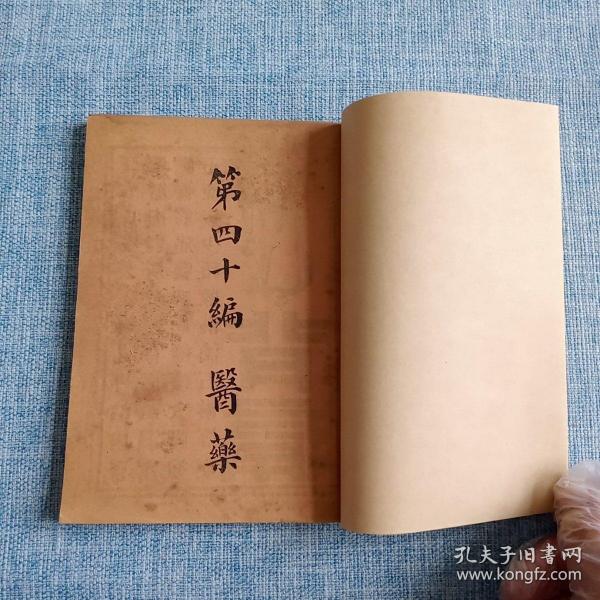 第四十編 醫藥
孔夫子旧書网
www.kongfz.com